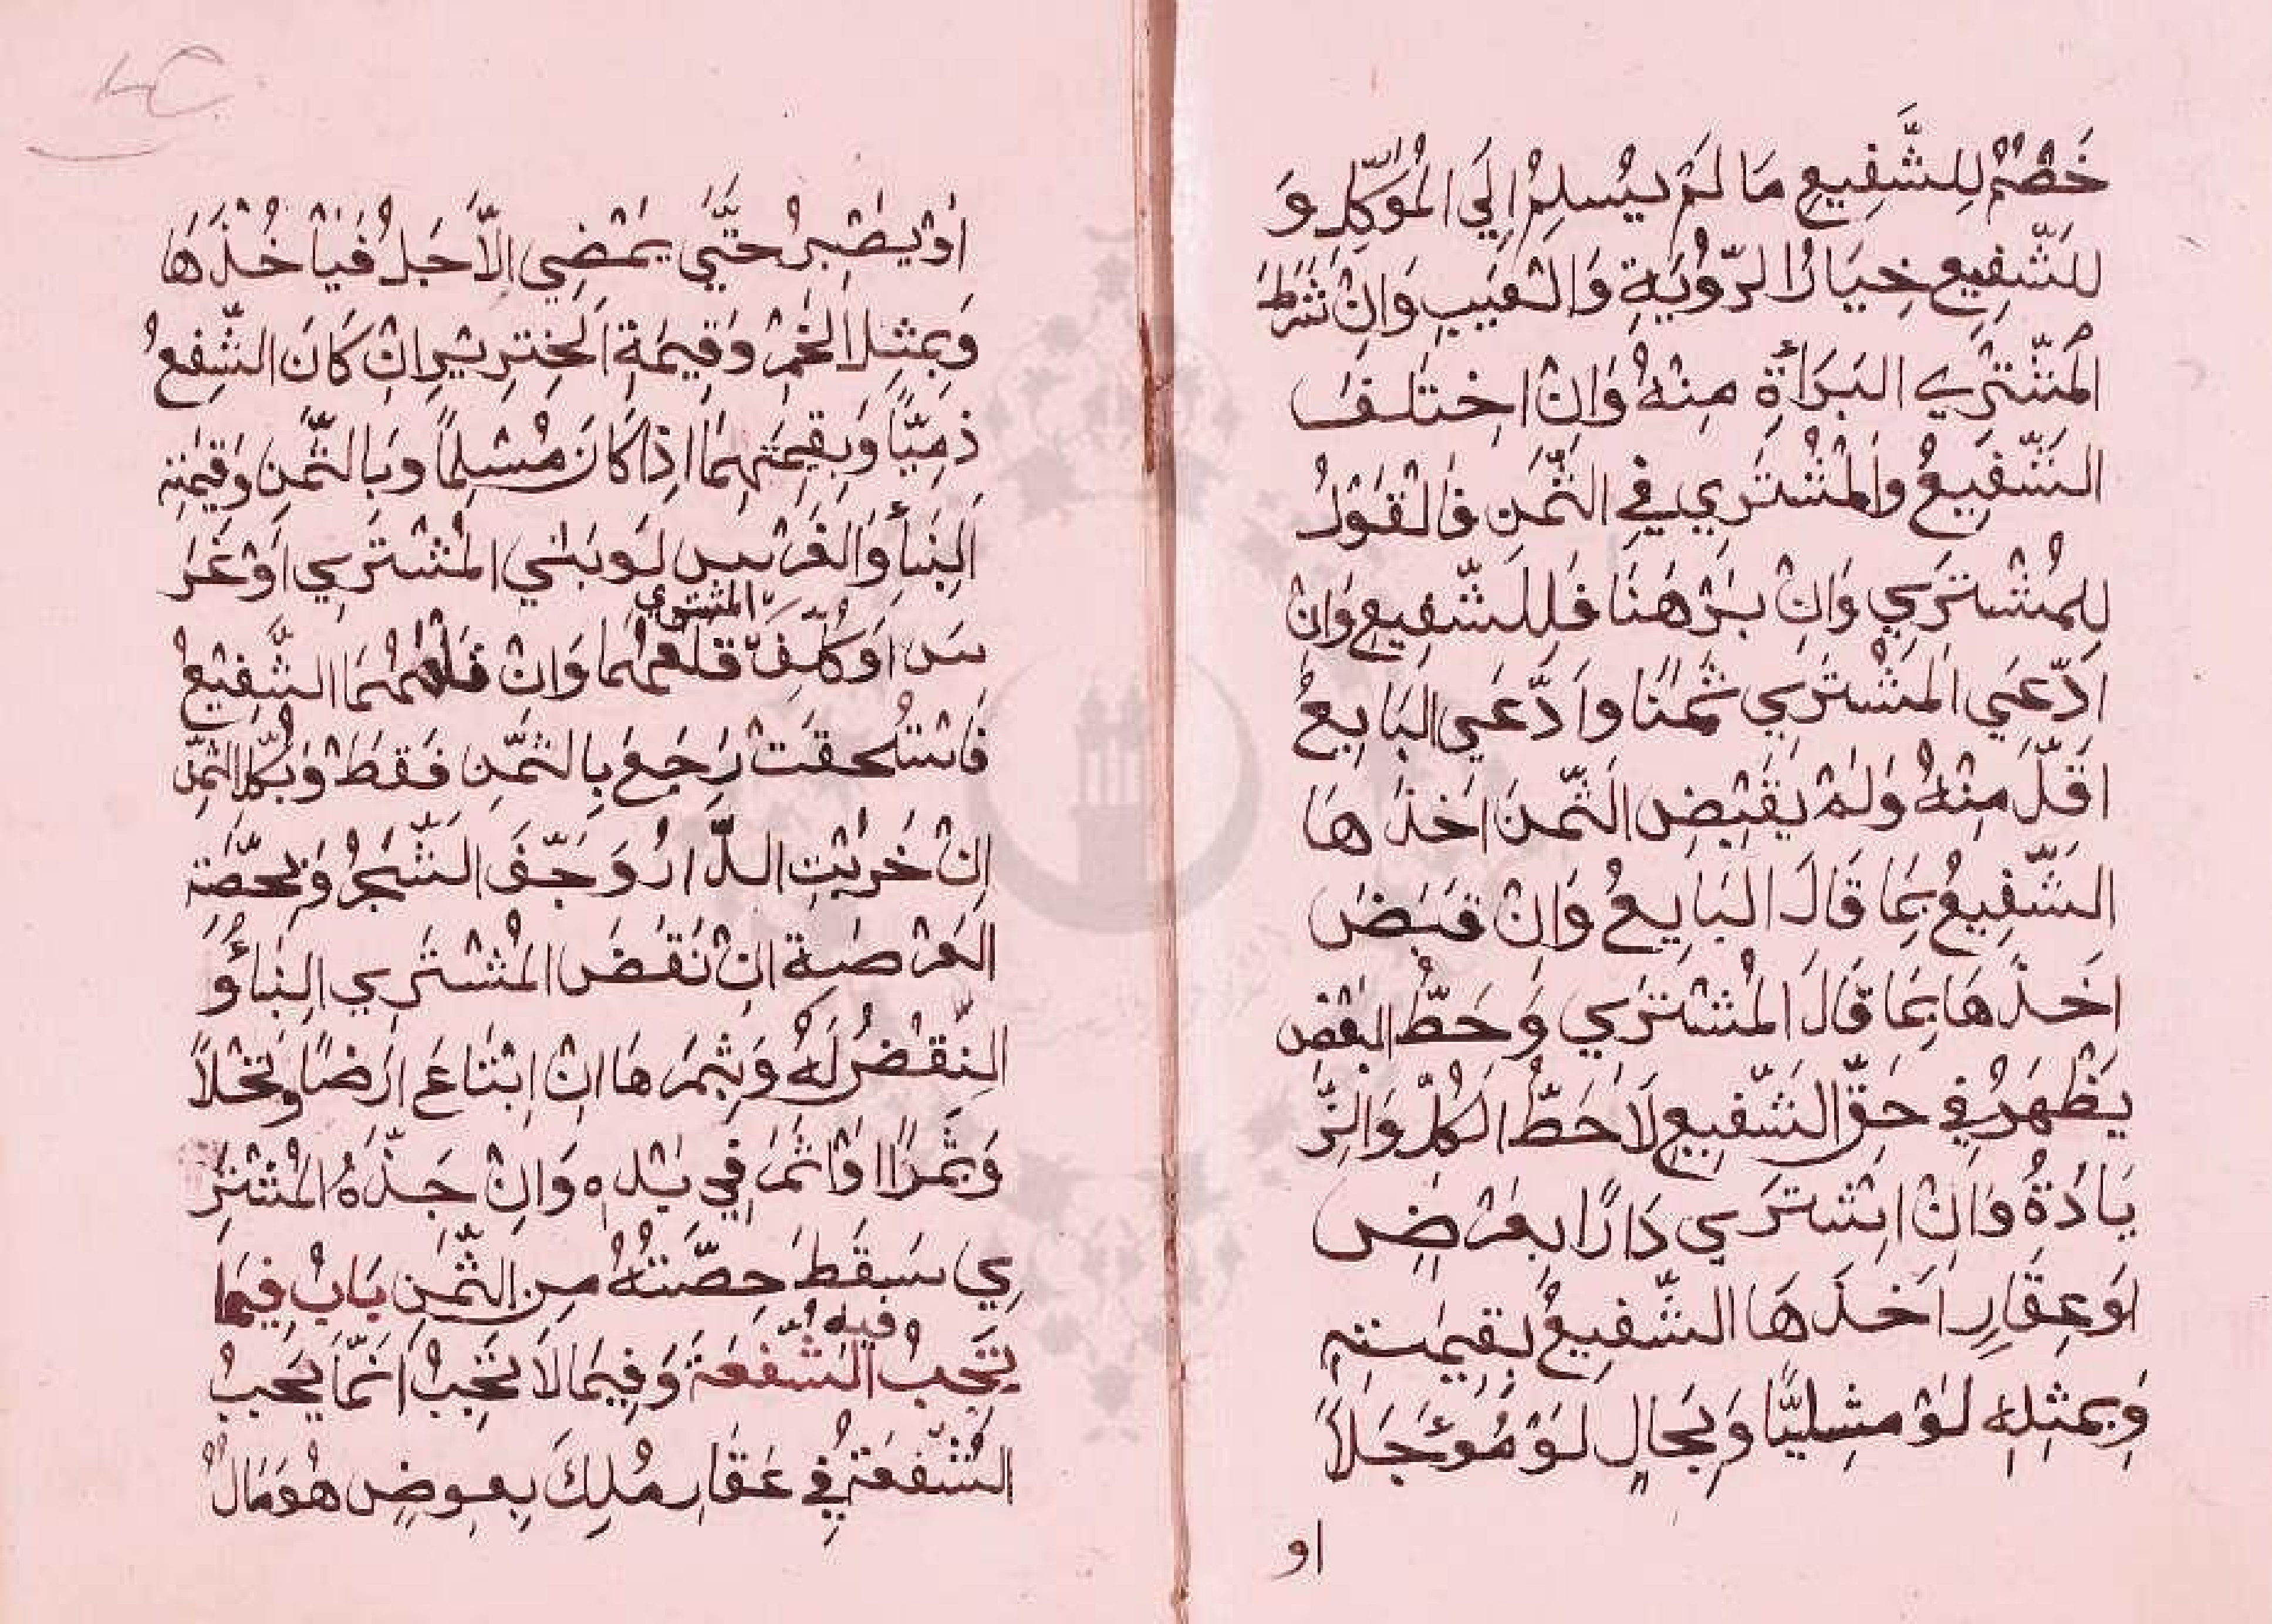 خَصْمٌ لِلشَّفِيعِ مَا لَمْ يُسْلِمْ اِلَي الْمُوَكِّلِ وَ
لِلشَّفِيعِ خِيَارُ الرُّوْيَةِ وَالْعَيْبِ وَاِنْ شَرَطَ
الْمُشْتَرِي الْبَرَأَةِ مِنْهُ وَاِنْ اِخْتَلَفَ
الشَّفِيعُ وَالْمُشْتَرِي فِي الثَّمَنِ فَالْقَوْلُ
لِلْمُشْتَرِي وَاِنْ بَرْهَنَا فَلِلشَّفِيعِ وَاِنْ
اِدَّعَي الْمُشْتَرِي ثَمَنًا وَادَّعَي الْبَايِعُ
اَقَلَّ مِنْهُ وَلَمْ يَقْبِضِ الثَّمَنَ اَخَذَهَا
الشَّفِيعُ بِمَا قَالَ الْبَايِعُ وَاِنْ قَبَضَ
اَخَذَهَا بِمَا قَالَ الْمُشْتَرِي وَحَطُّ الْبَعْضِ
يَظْهَرُ فِي حَقِّ الشَّفِيعِ لَا حَطُّ الْكُلِّ وَالزِّ
يَادَةُ وَاِنْ اِشْتَرَي دَارًا بِعَرْضٍ
اَوْ عِقَارٍ اَخَذَهَا الشَّفِيعُ بِقِيمَتِهِ
وَبِمِثْلِهِ لَوْ مِثْلِيًّا وَبِحَالٍ لَوْ مُؤَجَّلاً
او
اَوْ يَصْبِرُ حَتَّي يَمْضِي الْاَجَلُ فَيَاْخُذَهَا
وَبِمِثْلِ الْخَمْرِ وَقِيمَةِ الْخِنْزِيرِ اِنْ كَانَ الشَّفِعُ
ذِمِّيًّا وَبِقِيمَتِهِمَا اِذَا كَانَ مُسْلِمًا وَبِالثَّمَنِ وَقِيمَتِهِ
الْبِنَأِ وَالْغَرْسِ لَوْ بَنٰي الْمُشْتَرِي اَوْ غَرَ
سَ اَوْ كَلَّفَ الْمُشْتَرِي قَلْعَهُمَا وَاِنْ قَلَعَهُمَا الشَّفِيعُ
فَاسْتُحِقَّتْ رَجَعَ بِالثَّمَنِ فَقَطْ وَبِكُلِّ الثَّمَنِ
اِنْ خَرِبَتِ الدَّارُ وَجَفَّ الشَّجَرُ وَبِحِصَّةِ
الْعَرْصَةِ اِنْ نَقَضَ الْمُشْتَرِي الْبِنَأَ وَ
النِّقْضُ لَهُ وَبِثَمَرِهَا اِنْ اِبْتَاعَ اَرْضًا وَنَخْلاً
وَثَمَرًا اَوْ اَثْمَرَ فِي يَدِهِ وَاِنْ جَذَّهُ الْمُشْتَرِ
ي سَقَطَ حِصَّتُهُ مِنَ الثَّمَنِ بَابُ فِيمَا
تَجِبُ فيه الشُّفْعَةَ وَفِيمَا لَا تَجِبُ اِنَّمَا يَجِبُ
الشُّفْعَةُ فِي عَقَارٍ مُلِكَ بِعِوَضٍ هُوَ مَالٌ